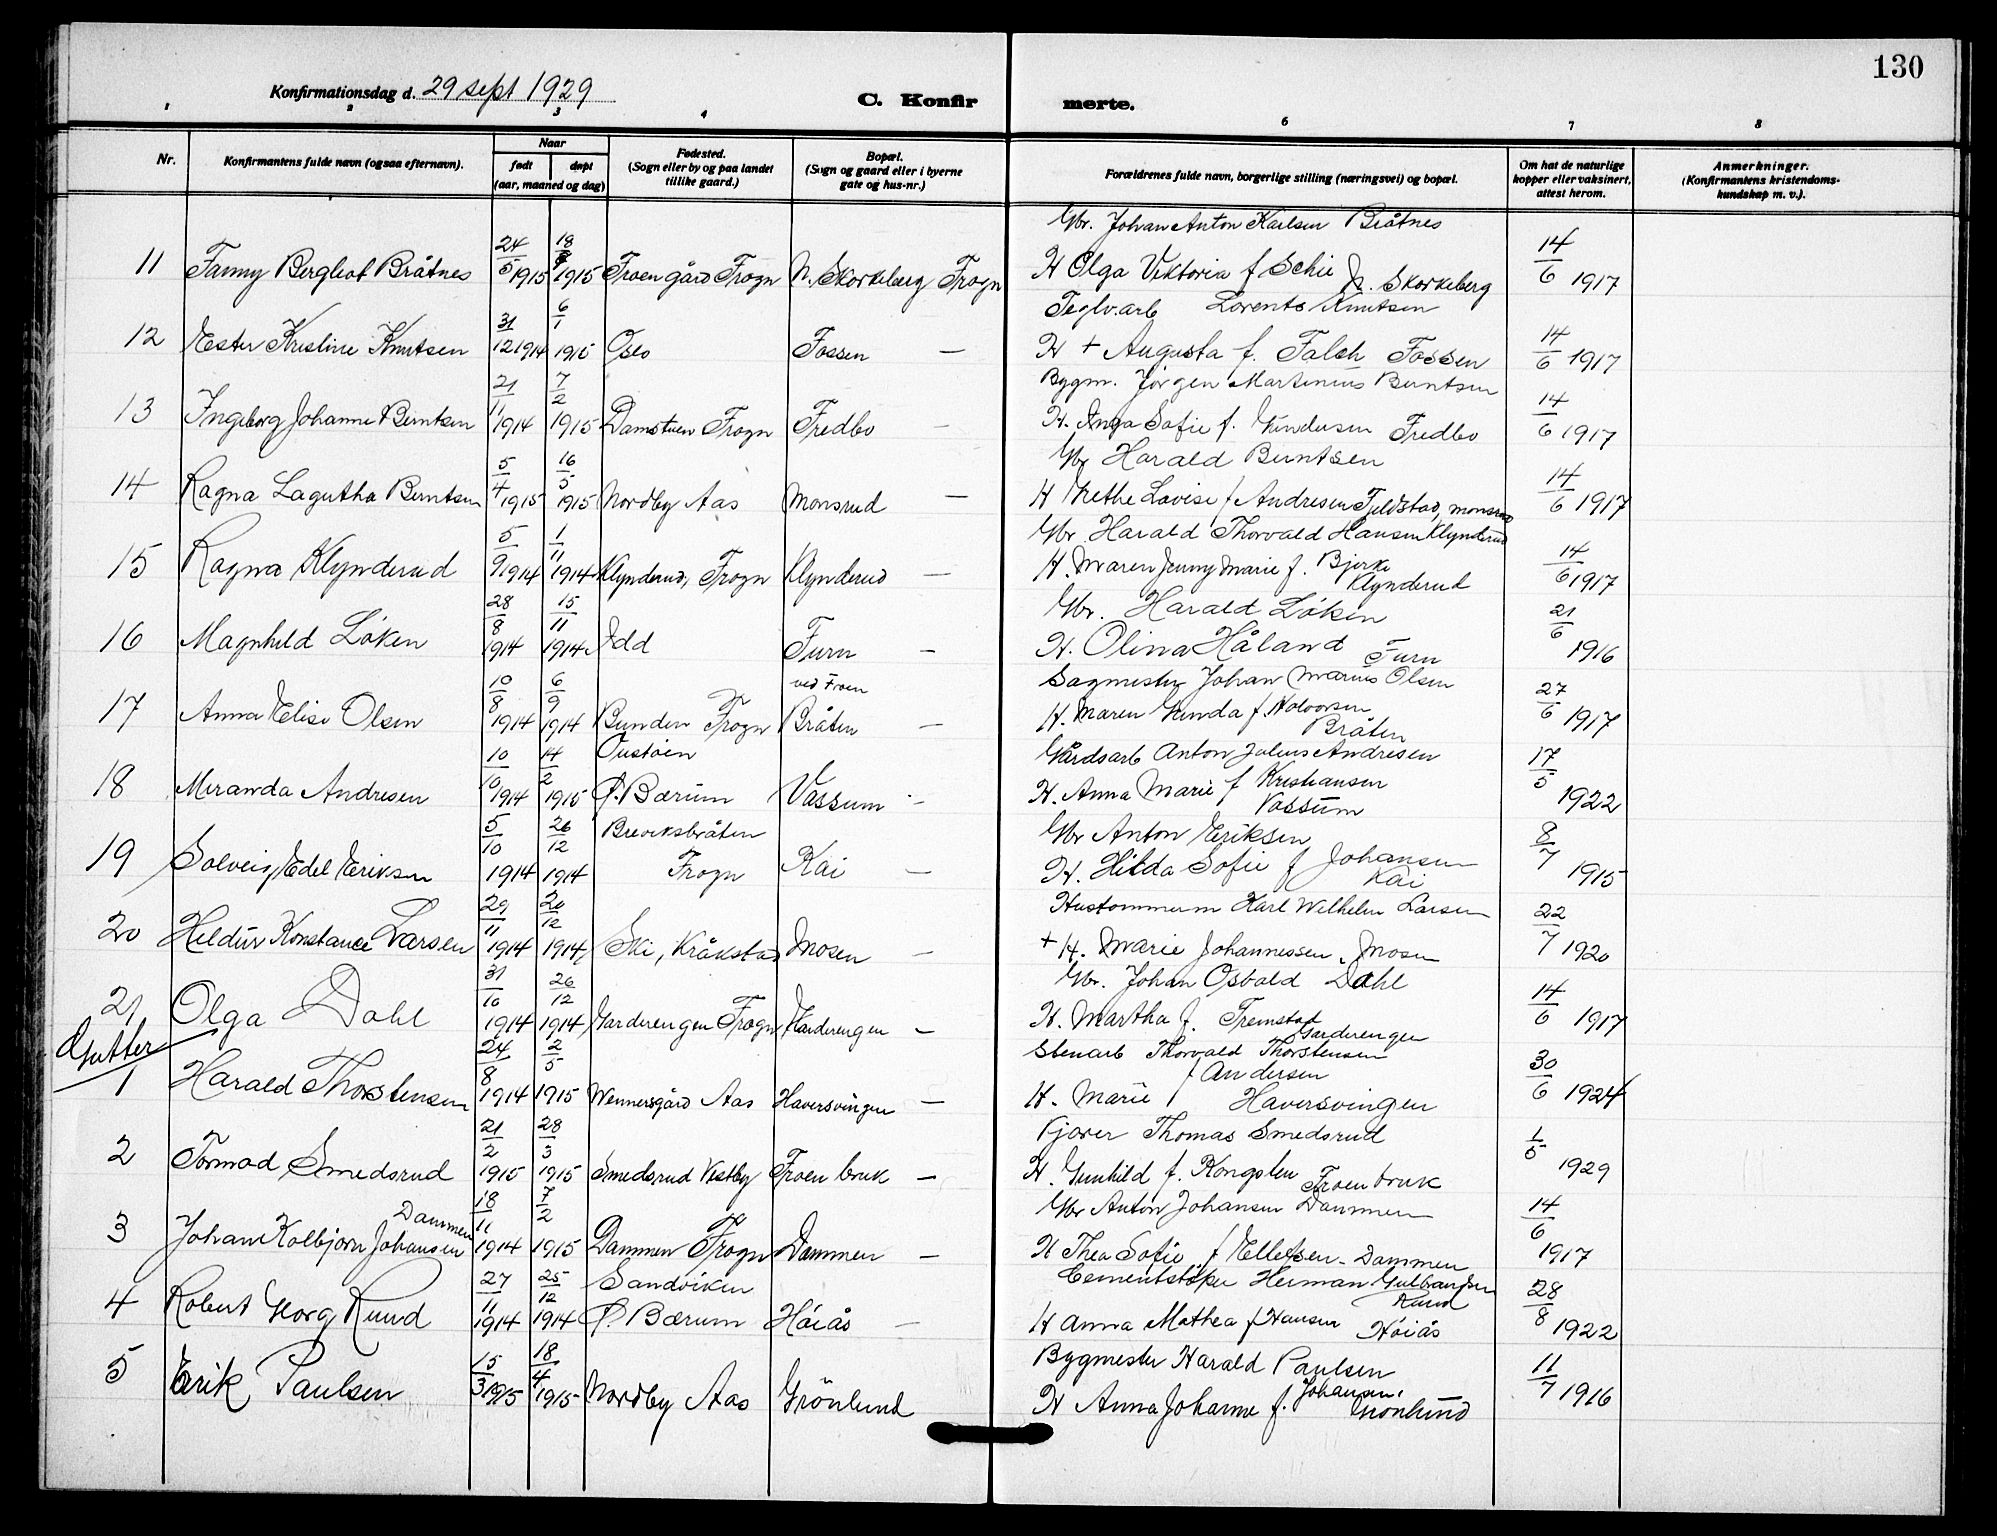 130
Konfirmationsdag d. 29 sept 1929
C. Konfirmerte.
1 2 3 4 6 7 8
Nr.
Konfirmantens fulde navn (ogsaa efternavn).
Naar
født
døpt
(aar, maaned og dag)
Fødested.
(Sogn eller by og paa landet
tillike gaard.)
Bopæl.
(Sogn og gaard eller i byerne
gate og hus-nr.)
Forældrenes fulde navn, borgerlige stilling (næringsvei) og bopæl.
Om hat de naturlige
kopper eller vaksinert,
attest herom.
Anmerkninger.
(Konfirmantens kristendoms-
kundskap m. v.).
Gbr. Johan Anton Karlsen Bråtnes
11 Fanny Bergliot Bråtnes 24/5 1915 18/7 1915 Froen gård Frogn N. Skorkeberg Frogn H Olga Viktoria f Schie N. Skorkeberg 14/6 1917
Teglv.arb Lorents Knutsen
12 Ester Kristine Knutsen 31/12 1914 6/1 1915 Oslo Fossen — H + Augusta f. Falch Fossen 14/6 1917
Bygm. Jörgen Martinius Berntsen
13 Ingeborg Johanne Berntsen 21/11 1914 7/2 1915 Damstuen Frogn Fredbo — H. Inga Sofie f. Gundersen Fredbo 14/6 1917
Gbr Harald Berntsen
14 Ragna Lagutha Berntsen 5/4 1915 16/5 1915 Nordby Aas Monsrud — H Grethe Lovise f Andresen Fjeldstad, monsrud 14/6 1917
Gbr. Harald Thorvald Hansen Klynderud
15 Ragna Klynderud 5/9 1914 1/11 1914 Klynderud, Frogn Klynderud — H. Maren Jenny Marie f. Bjerke Klynderud 14/6 1917
Gbr. Harald Löken
16 Magnhild Löken 28/8 1914 15/11 1914 Idd Furu — H. Olina Håland Furu 21/6 1916
ved Froen Sagmester Johan Marius Olsen
17 Anna Elise Olsen 10/8 1914 6/9 1914 Bunden Frogn Bråten — H. Maren Gunda f. Halvorsen Bråten 27/6 1917
Oustöen Gårdsarb Anton Julius Andresen
18 Miranda Andresen 10/10 1914 14/2 1915 Ø. Bærum Vassum — H. Anna Marie f Kristiansen Vassum 17/5 1922
Breviksbråten Gbr Anton Eriksen
19 Solveig Edel Eriksen 5/10 1914 26/12 1914 Frogn Kai — H. Hilda Sofie f Johansen Kai 8/7 1915
Hustömmerm Karl Wilhelm Larsen
20 Hildur Konstance Larsen 29/11 1914 20/12 1914 Ski, Kråkstad Mosen — + H. Marie Johannessen, Mosen 22/7 1920
Gbr. Johan Osvald Dahl
21 Olga Dahl 31/10 1914 26/12 1914 Garderengen Frogn Garderengen — H. Martha f. Fremstad Garderengen 14/6 1917
Gutter
Stenarb Thorvald Thorstensen
1 Harald Thorstensen 24/8 1914 2/5 1915 Wennersgård Aas Haversvingen — H. Marie f Andersen Haversvingen 30/6 1924
Kjører Thomas Smedsrud
2 Tormod Smedsrud 21/2 1915 28/3 1915 Smedsrud Vestby Froen bruk — H. Gunhild f. Kongslien Froen bruk 1/5 1929
Gbr Anton Johansen Dammen
3 Johan Kolbjørn Johansen Dammen 18/11 1914 7/2 1915 Dammen Frogn Dammen — H Thea Sofie f Ellefsen - Dammen 14/6 1917
Sandviken Cementstöper Herman Gulbrandsen Ruud
4 Robert Georg Ruud 27/11 1914 25/12 1914 Ø. Bærum Höiås — H Anna Mathea f Hansen Höiås 28/8 1922
Bygmester Harald Paulsen
5 Erik Paulsen 15/3 1915 18/4 1915 Nordby Aas Grönlund H Anna Johanne f. Johansen, Grönlund 11/7 1916